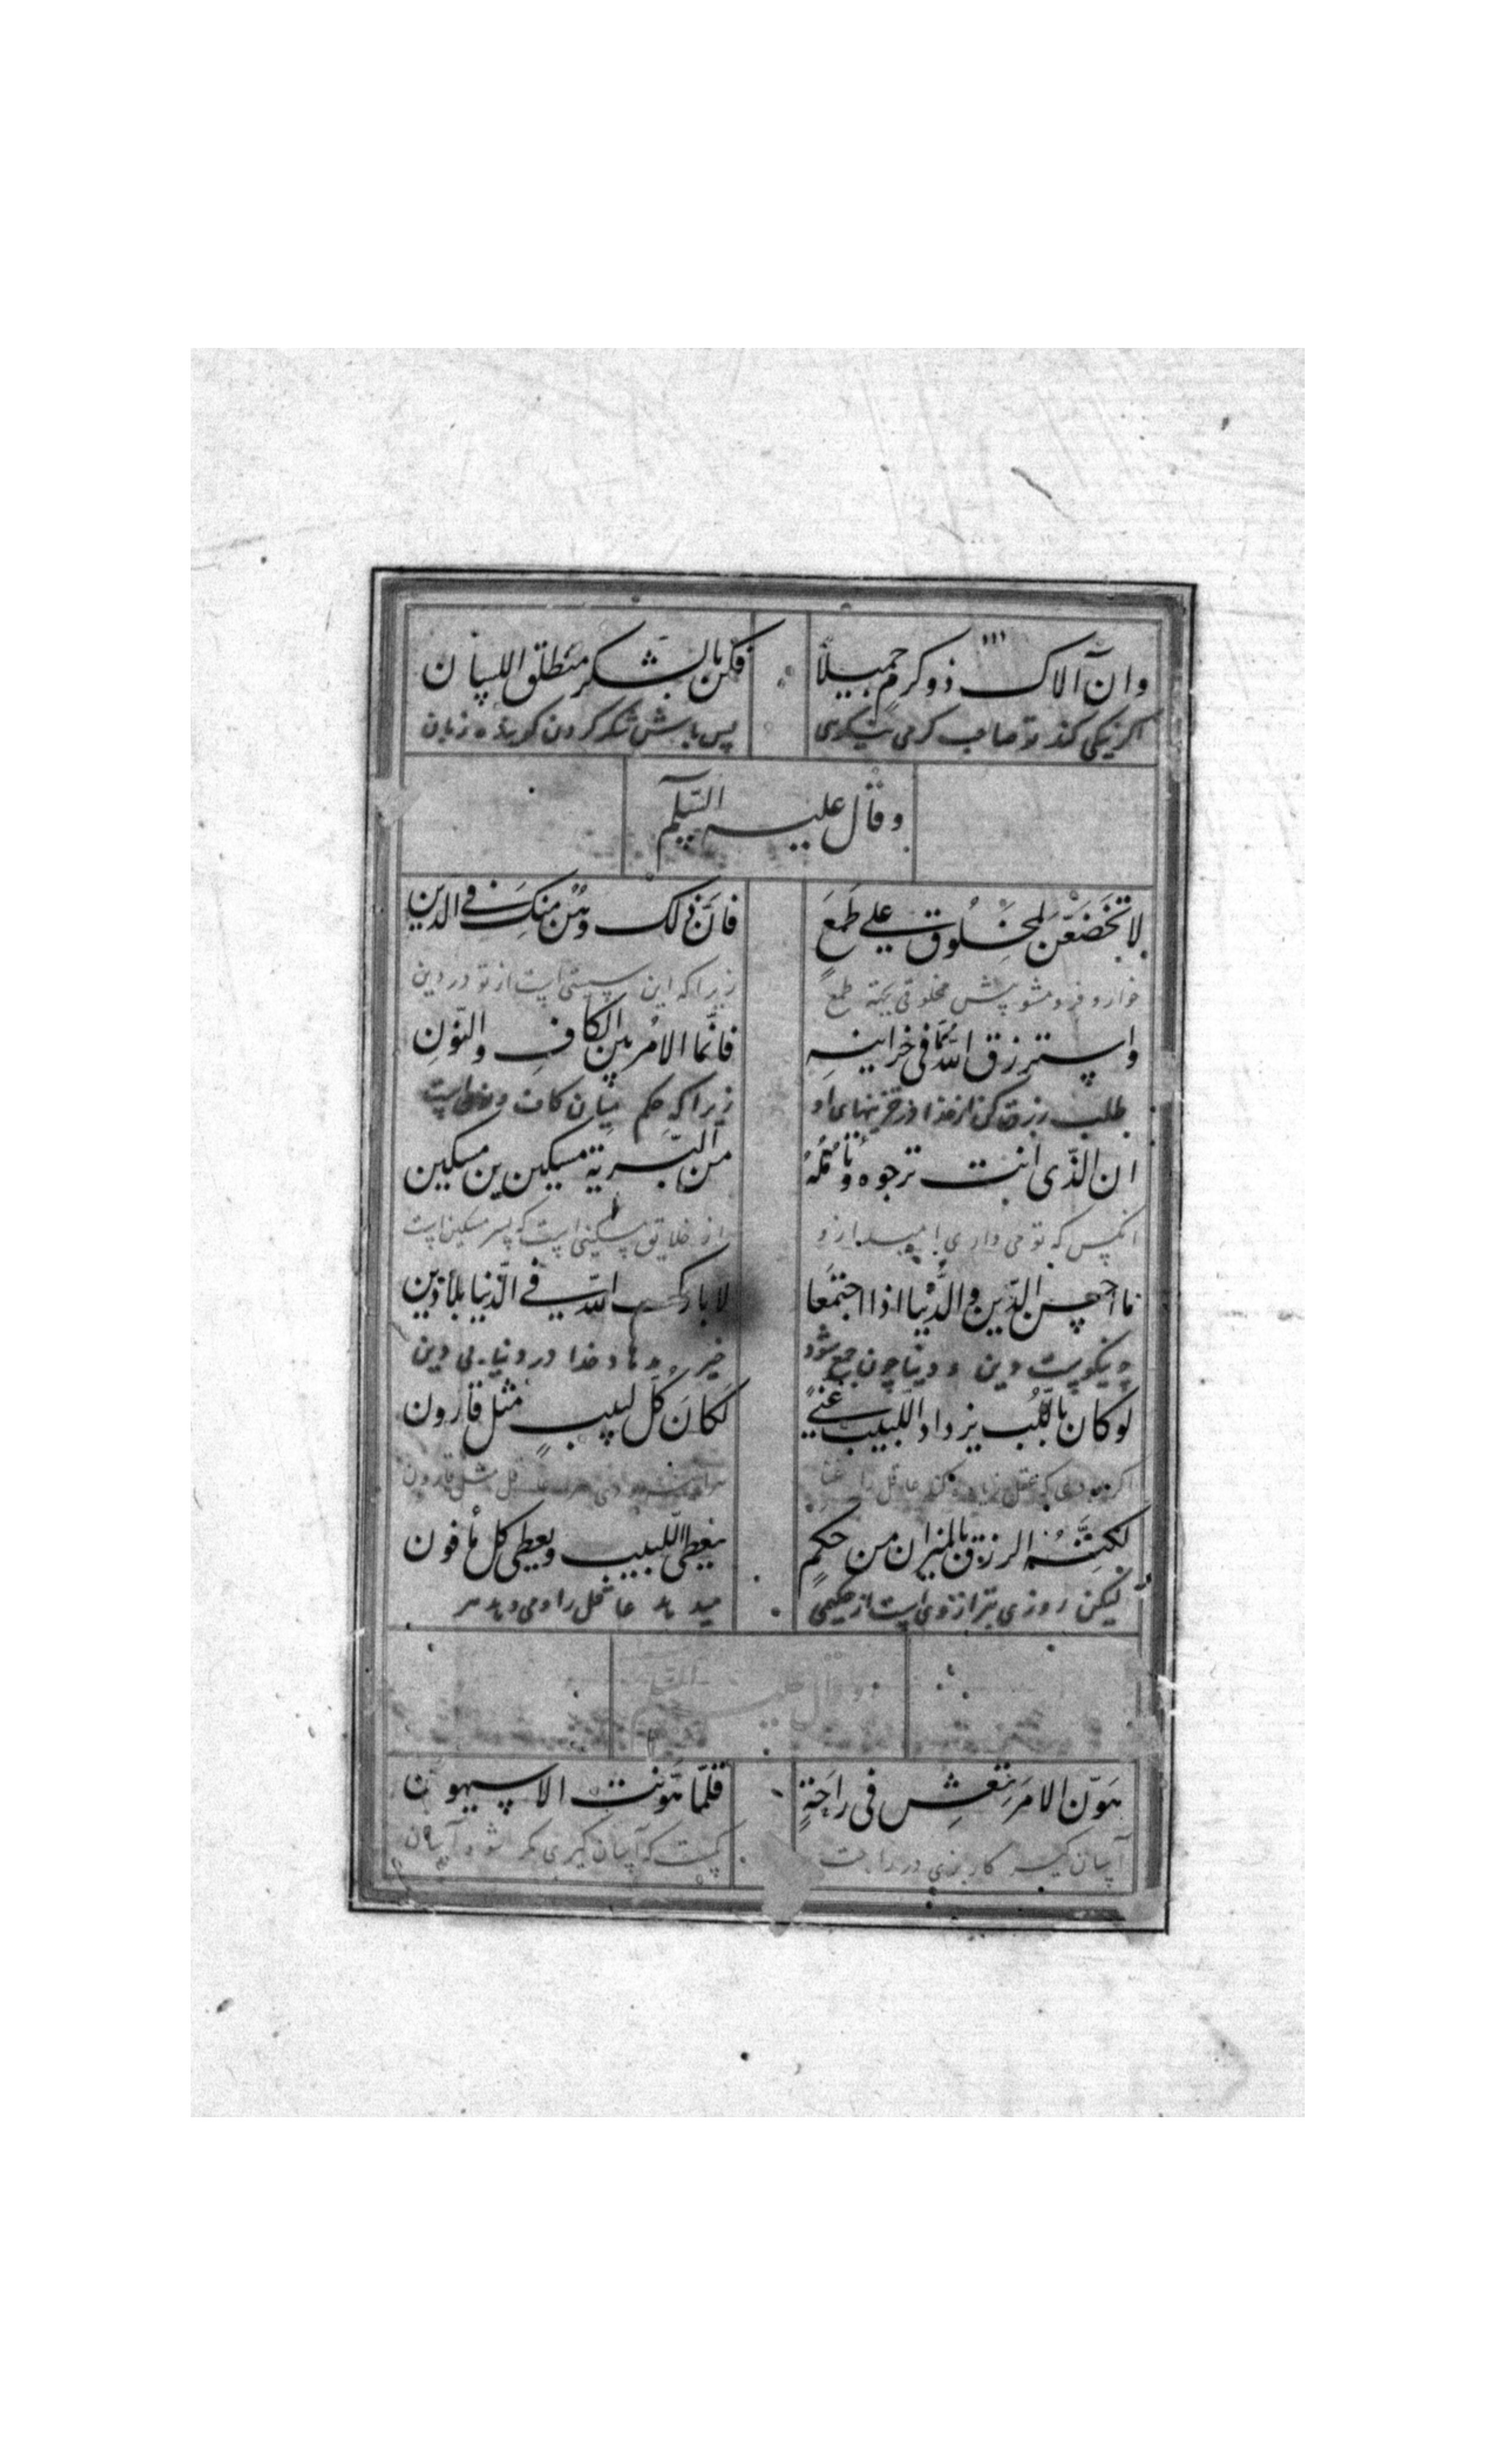 وان آلاک ذو کرمٍ جمیلاً فکن بالشکر منطلق اللسان
اکر نیکی کند تو صاحب کرمی نیکویی پس باش شکر کردن کوینده زبان
وقال علیه السّلم
لا تخضعنّ لمخلوق علی طمعٍ فانّ ذلک وهن منک فی الدین
خوار و فرو مشو پیش مخلوقی بجهة طمع زیرا که این سستی است از تو در دین
واسترزق اللّه ممّا فی خزاینهِ فانّما الامر بین الکافِ والنّونِ
طلب رزق کن از خدا از خزینهای او زیرا که حکم میان کاف و نون است
ان الّذی انت ترجوه وتأمُلهُ من البریّة مسکین بن مسکین
انکس که تو می داری امید ازو از خلایق مسکینی است که پسر مسکین است
ما احسن الدّین والدُّنیا اذا اجتمعا لا بارک اللّه فی الدّنیا بلا دین
چه نیکوست دین و دنیا چون جمع شود خیر مدهاد خدا در دنیا بی دین
لو کان باللُّب یزداد اللبیب غنیً لکانَ کلّ لبیبٍ مثل قارون
اکر بودی که عقل زیاده کند عاقل را غنا عاقل مثل قارون
لکنّه الرزق بالمیزان من حکمٍ یعطی اللّبیب ویعطی کل مأفون
لیکن روزی بترازوی است از حکیمی میدهد عاقل را و می دهد هر
وقال علیه السّلم
هوّن الامرَ تعش فی راحةٍ قلّما هوّنت الا سیهون
آسان کیر کار بزی در راحت که آسان کیری مکر شود آسان